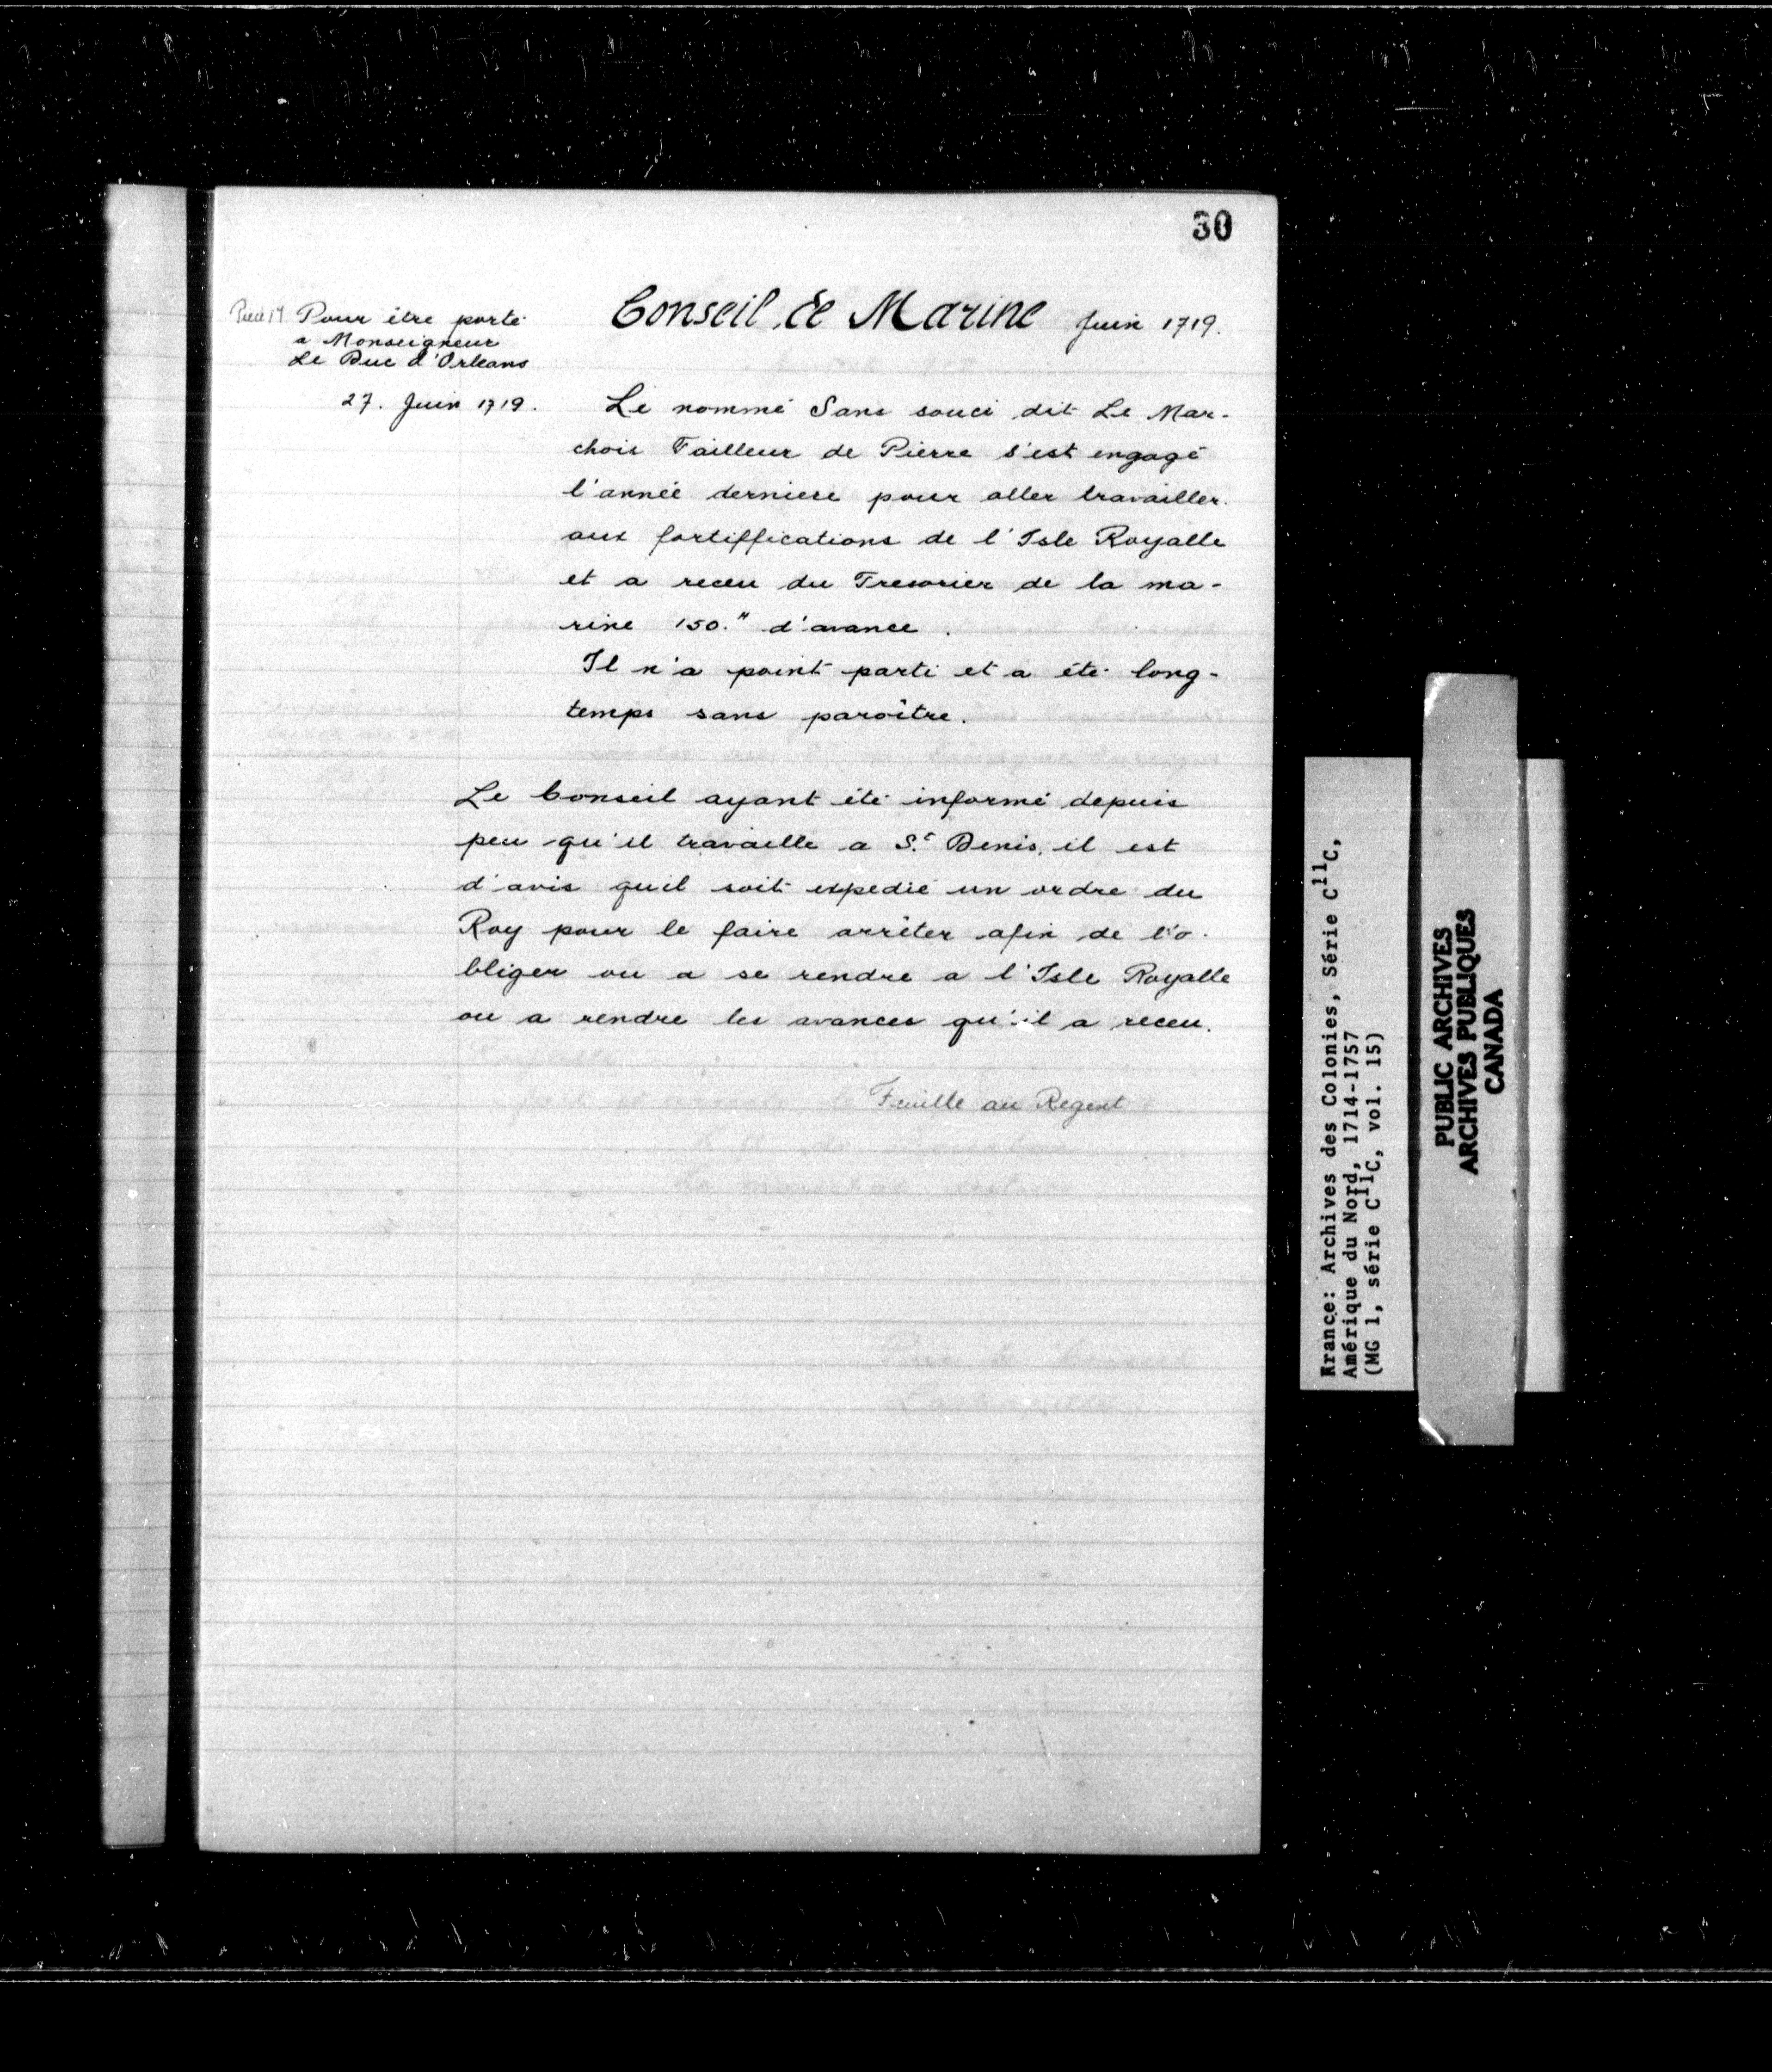 30
Conseil de Marine Juin 1719.
Pour être porté
a Monseigneur
Le Duc d'Orleans
27. Juin 1719.
Le nommé Sans souci dit Le Mar-
chois Tailleur de Pierre s'est engagé
l'année derniere pour aller travailler
aux fortiffications de l'Isle Royalle
et a receu du Tresorier de la ma-
rine 150." d'avance.
Il n'a point parti et a été long-
temps sans paroître.
Le Conseil ayant été informé depuis
peu qu'il travaille a St Denis, il est
d'avis quil soit expedié un ordre du
Roy pour le faire arrêter afin de l'o-
bliger ou a se rendre a l'Isle Royalle
ou a rendre les avances qu'il a receu.
Feuille au Regent
France: Archives des Colonies, Série C11C,
Amérique du Nord, 1714-1757
(MG 1, série C11C, vol. 15)
PUBLIC ARCHIVES
ARCHIVES PUBLIQUES
CANADA